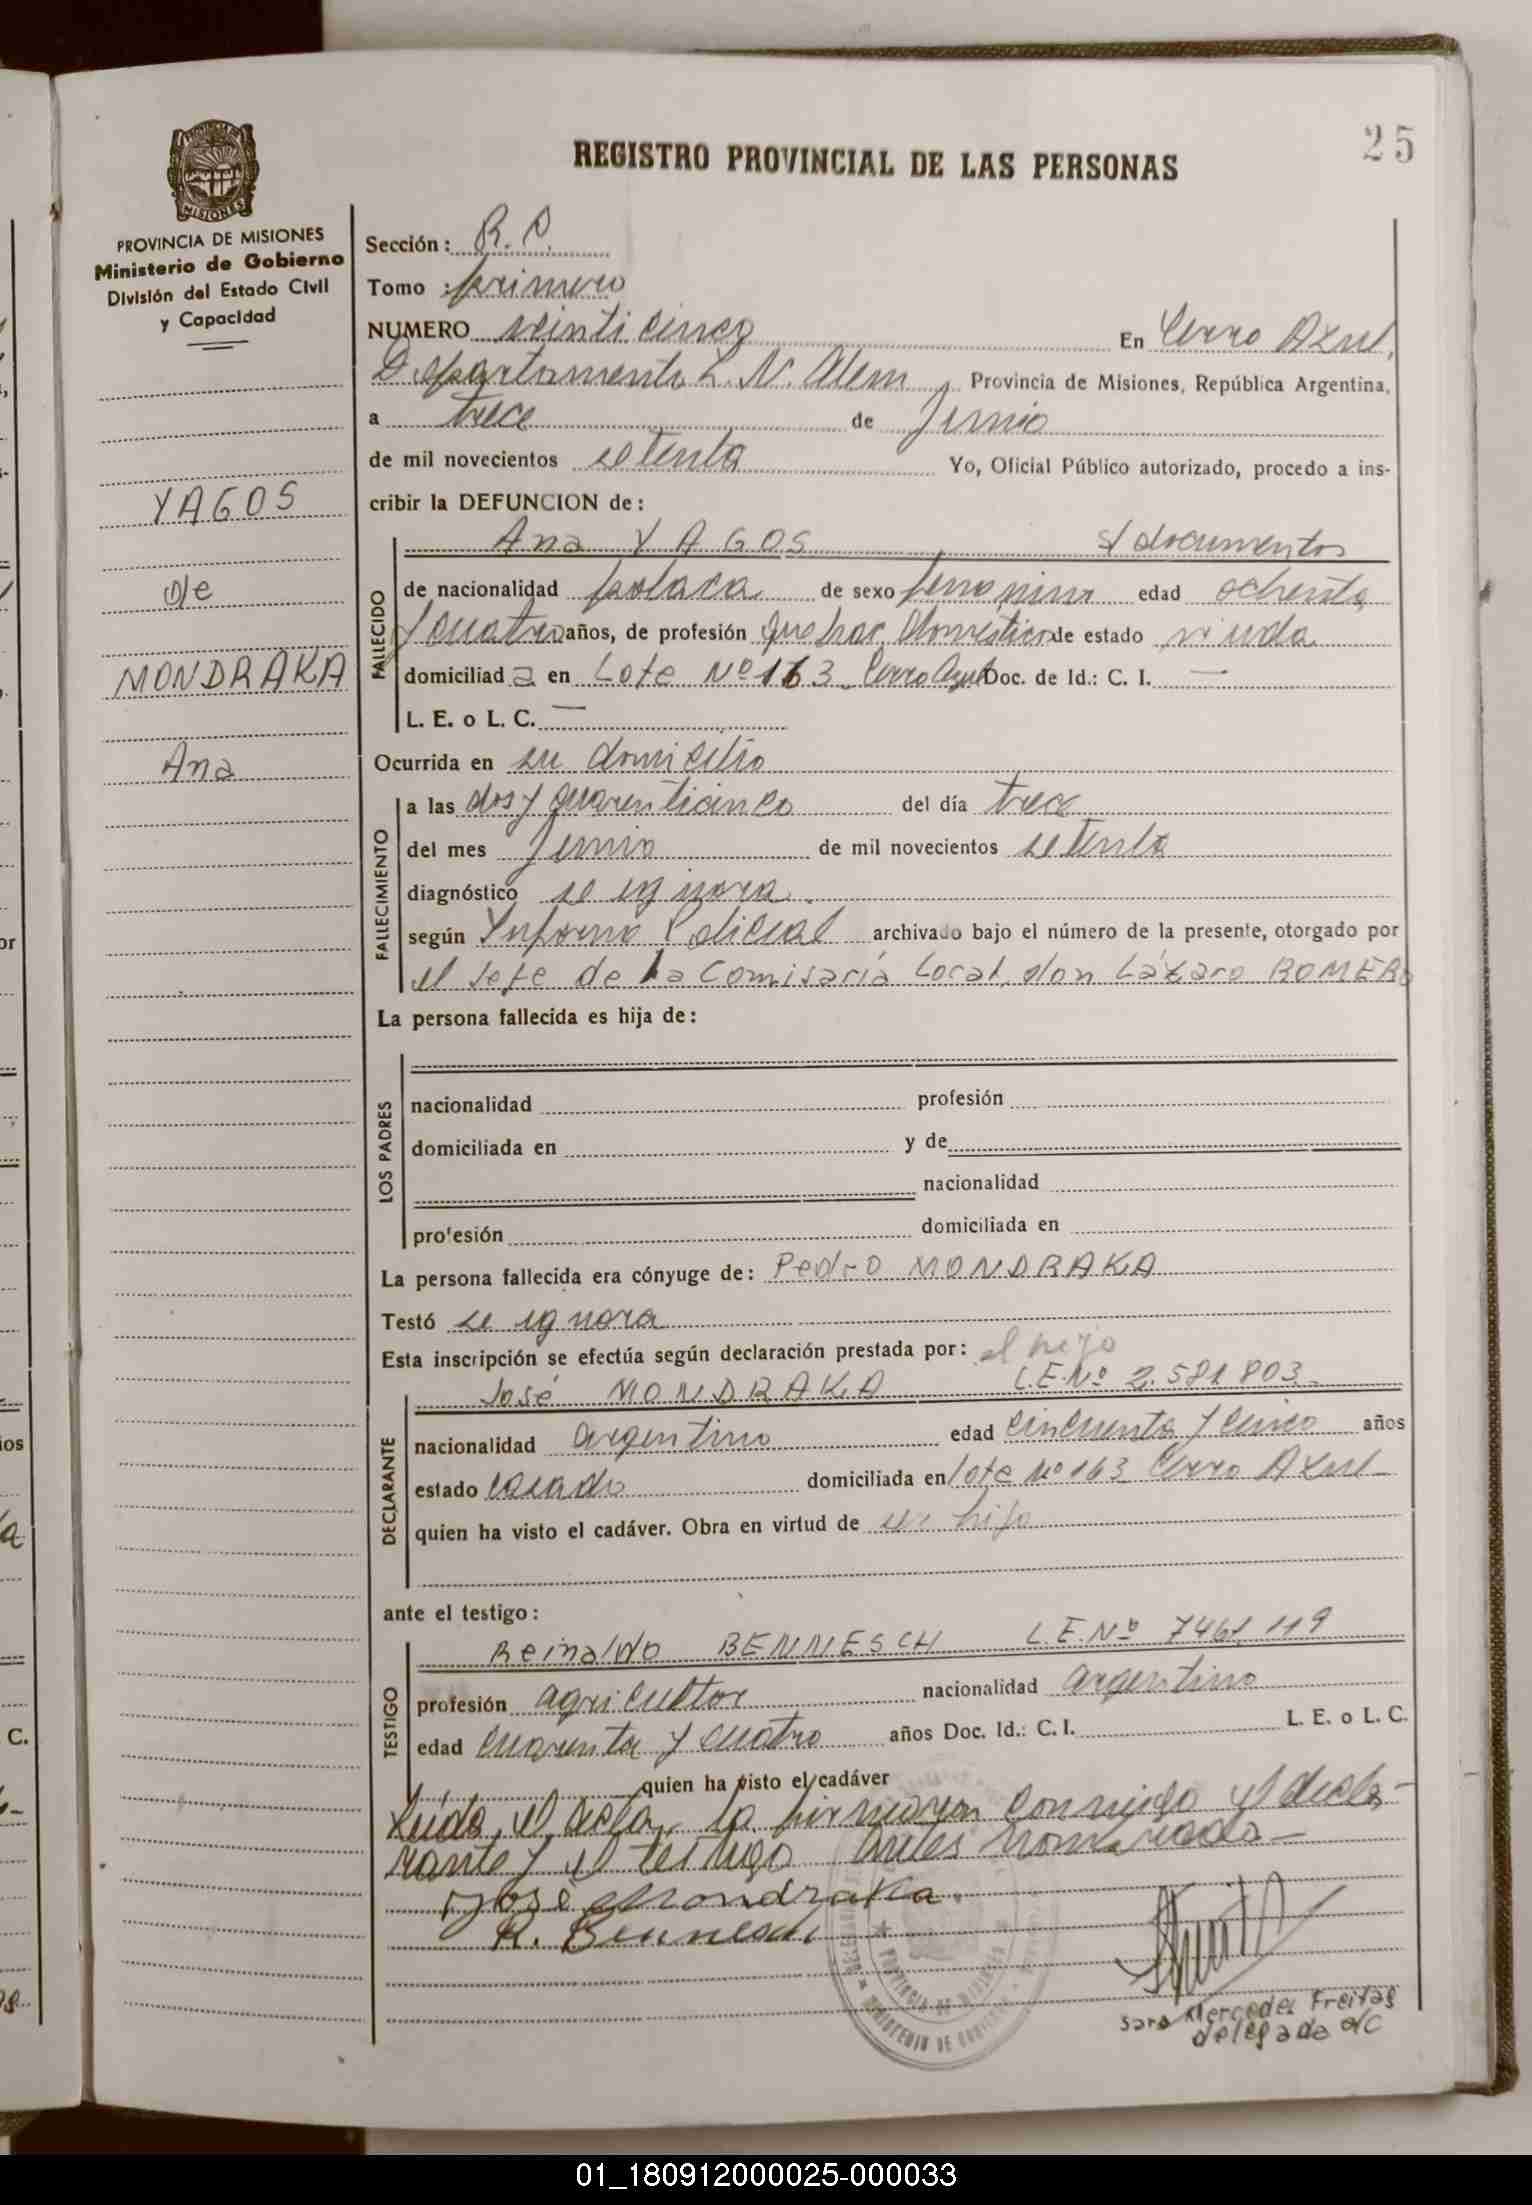 25
REGISTRO PROVINCIAL DE LAS PERSONAS
PROVINCIA DE MISIONES
Ministerio de Gobierno
División del Estado Civil
y Capacidad
YAGOS
de
MONDRAKA
Ana
Sección :
Tomo : primero
NUMERO veinticinco En Cerro Azul,
Departamento L. N. Alem, Provincia de Misiones, República Argentina,
a trece de Junio
de mil novecientos setenta Yo, Oficial Público autorizado, procedo a ins-
cribir la DEFUNCION de :
Ana YAGOS s/documentos
FALLECIDO
de nacionalidad polaca de sexo femenino edad ochenta
y cuatro años, de profesión domésticos de estado viuda
domiciliada en Lote Nº 163 Cerro Azul Doc. de Id.: C. I. —
L. E. o L. C. —
Ocurrida en su domicilio
FALLECIMIENTO
a las dos y cuarenticinco del día trece
del mes Junio de mil novecientos setenta
diagnóstico se ignora
según Informe Policial archivado bajo el número de la presente, otorgado por
el Jefe de la Comisaría Local, don Lázaro ROMERO
La persona fallecida es hija de :
LOS PADRES
nacionalidad profesión
domiciliada en y de
nacionalidad
profesión domiciliada en
La persona fallecida era cónyuge de : Pedro MONDRAKA
Testó se ignora
Esta inscripción se efectúa según declaración prestada por : el hijo
José MONDRAKA L.E.Nº 2.581.803
DECLARANTE
nacionalidad argentino edad cincuenta y cinco años
estado casado domiciliada en lote Nº 163 Cerro Azul
quien ha visto el cadáver. Obra en virtud de hijo
ante el testigo :
Reinaldo BENNESCH L.E.Nº 7461.119
TESTIGO
profesión agricultor nacionalidad argentino
edad cuarenta y cuatro años Doc. Id.: C. I. L. E. o L. C.
quien ha visto el cadáver
Leída el acta, la firmaron conmigo el decla-
rante y el testigo antes nombrado —
José Mondraka
R. Bennesch
PROVINCIA DE MISIONES
MINISTERIO DE GOBIERNO
Sara Mercedes Freitas
delegada
01_180912000025-000033